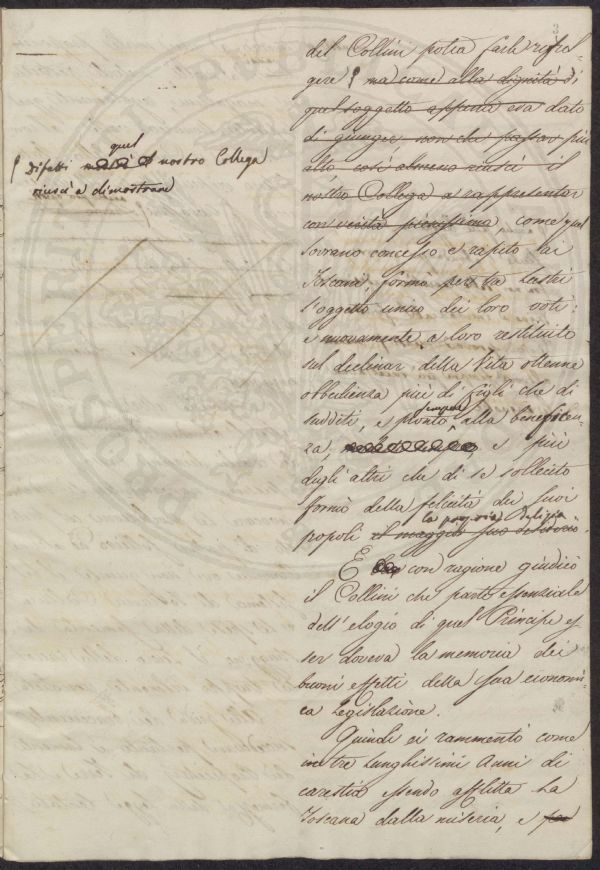 3
del Collini potea farli riful-
gere ſ ma come alla dignità di
quel soggetto appena era dato
di giungere, non che passar più
alto, così almeno riuscì il
nostro Collega a rappresentar
con verità pienissima, come quel
Sovrano concesso e rapito ai
Toscani, formò per tre Lustri
l'oggetto unico dei loro voti:
e nuovamente a loro restituito
sul declinar della Vita ottenne
obbedienza più di figli che di
sudditi, e pronto sempre alla beneficen-
za, e più
degli altri che di se sollecito
formò della felicità dei suoi
popoli il maggior suo desiderio.
la propria delizia
E con ragione giudicò
il Collini che parte essenziale
dell'elogio di quel Principe es-
ser doveva la memoria dei
buoni effetti della sua economi-
ca Legislazione.
Quindi ci rammentò come
in tre lunghissimi Anni di
carestia essendo afflitta La
Toscana dalla miseria, e per
quel
ſ Difetti nostro Collega
riuscì a dimostrare